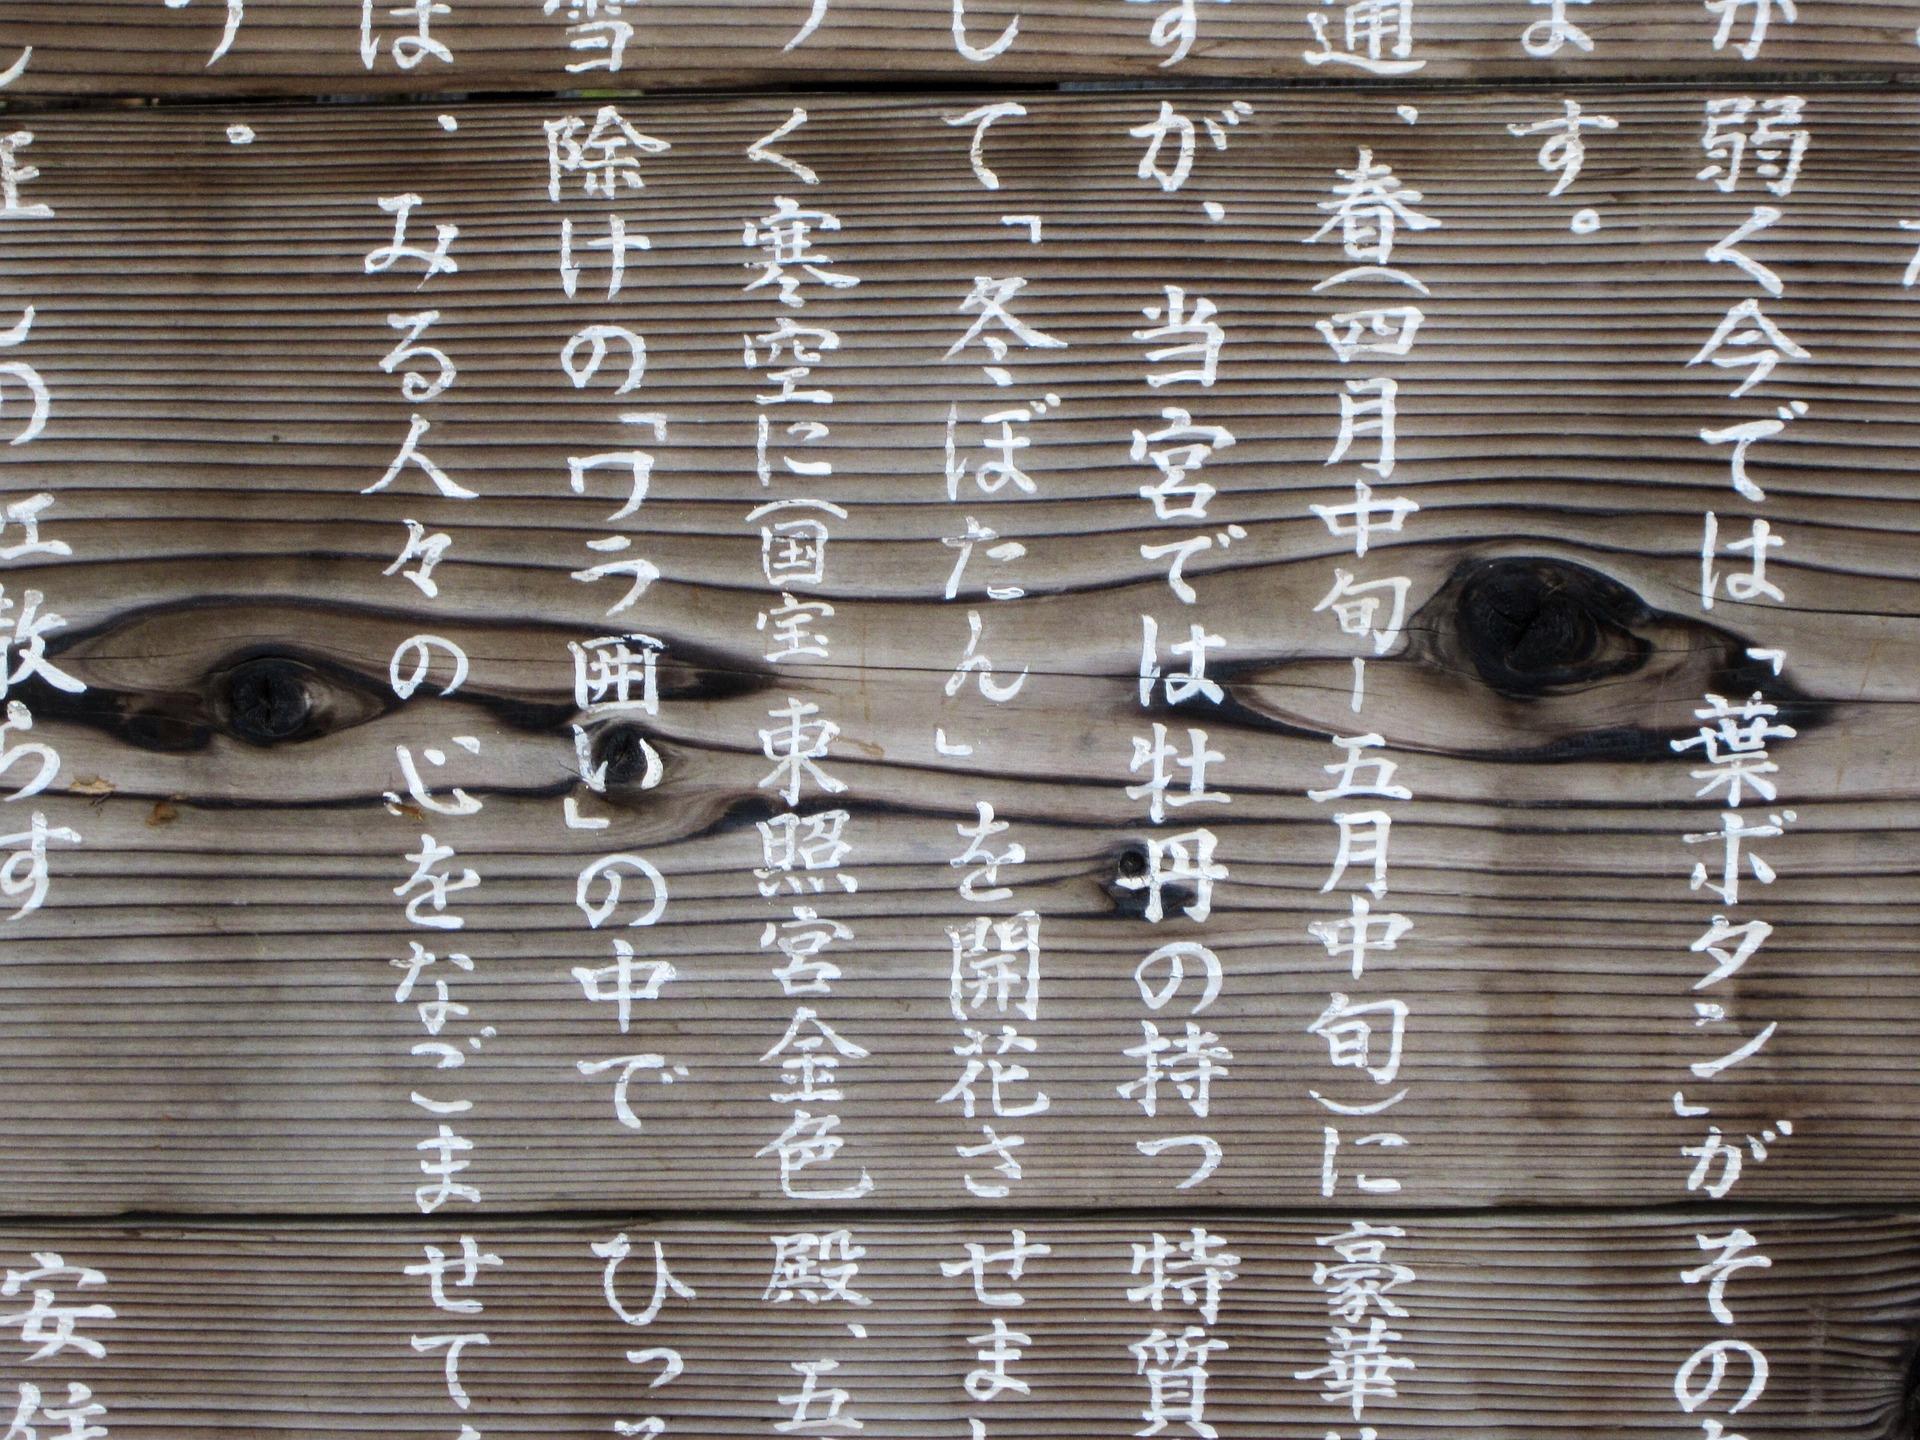 が弱く今では「葉ボタン」がその
ます。
通、春（四月中旬ー五月中旬）に豪華
すが、当宮では牡丹の持つ特質
して「冬ぼたん」を開花させまし
く寒空に（国宝 東照宮金色殿、五
雪除けの「ワラ囲い」の中でひっそ
は、みる人々の心をなごませて
う。
散らす 安住